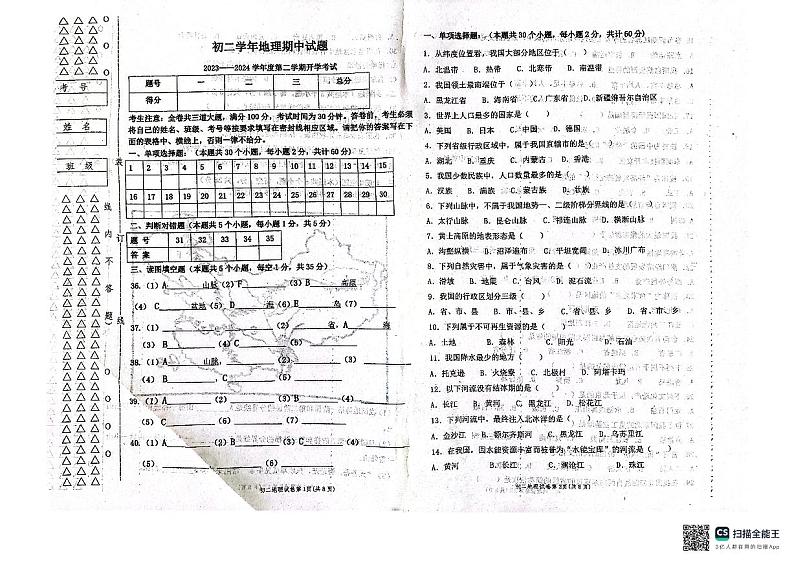 初二学年地理期中试题
2023——2024 学年度第二学期开学考试
题号 一 二 三 总分
得分
考生注意：全卷共三道大题，满分 100 分，考试时间为 30 分钟。答卷前，考生必须
将自己的姓名、班级、考号等按要求填写在密封线相应区域。请把你的答案写在下
面的表格中、横线上，否则一律不给分。
一、单项选择题：（本题共 30 个小题，每小题 2 分，共计 60 分）
1 2 3 4 5 6 7 8 9 10 11 12 13 14 15
16 17 18 19 20 21 22 23 24 25 26 27 28 29 30
二、判断对错题（本题共 5 个小题，每小题 1 分，共 5 分）
题 号 31 32 33 34 35
答 案
三、读图填空题（本题共 5 个小题，每空 1 分，共 35 分）
36.（1）A 山脉（2）F （3）B 高原
（4）C 盆地（5）D 海（6）E 岛（7）
37.（1） （2） 省，A 海
B （3） C （4）
38.（1）A 山脉， （2） （3）
（4）B ，C （5）
39.（1） （2） （3）
（4） （5）
40.（1）A （2）B （3）C （4）
（5） （6）
初二地理试卷第 1页(共 8 页)
考 号
姓 名
班 级
装
订
线
线
内
不
答
题
一、单项选择题：（本题共 30 个小题，每小题 2 分，共计 60 分）
1. 从纬度位置看，我国大部分地区位于（ ）
A. 北温带 B. 热带 C. 北寒带 D. 南温带
2. 我国领土最南端位于（ ）
A. 黑龙江省 B. 海南省 C. 广东省 D. 新疆维吾尔自治区
3. 世界上人口最多的国家是（ ）
A. 美国 B. 日本 C. 中国 D. 德国
4. 下列省级行政区域中，属于我国直辖市的是（ ）
A. 湖北 B. 重庆 C. 内蒙古 D. 香港
5. 我国少数民族中，人口数量最多的是（ ）
A. 汉族 B. 满族 C. 蒙古族 D. 壮族
6. 下列山脉中，不属于我国地势一、二级阶梯分界线的是（ ）
A. 太行山脉 B. 昆仑山脉 C. 祁连山脉 D. 横断山脉
7. 黄土高原的地表形态是（ ）
A. 沟壑纵横 B. 沼泽遍布 C. 平坦宽阔 D. 冰川广布
8. 下列自然灾害中，属于气象灾害的是（ ）
A. 滑坡 B. 地震 C. 台风 D. 泥石流
9. 我国的行政区划分三级（ ）
A. 省、市、县 B. 市、县、乡 C. 省、县、乡 D. 省、市、乡
10. 下列属于不可再生资源的是（ ）
A. 土地 B. 森林 C. 阳光 D. 石油
11. 我国降水最少的地方（ ）
A. 托克逊 B. 火烧寮 C. 北极村 D. 阿塔卡玛
12. 以下河流没有结冰期的是（ ）
A. 长江 B. 黄河 C. 黑龙江 D. 松花江
13. 下列河流中，最终注入北冰洋的是（ ）
A. 金沙江 B. 额尔齐斯河 C. 黑龙江 D. 乌苏里江
14. 在我国，因水能资源丰富而被誉为“水能宝库”的河流是（ ）
A. 黄河 B. 长江 C. 澜沧江 D. 珠江
初二地理试卷第 2页(共 8 页)
CS 扫描全能王
3亿人都在用的扫描App